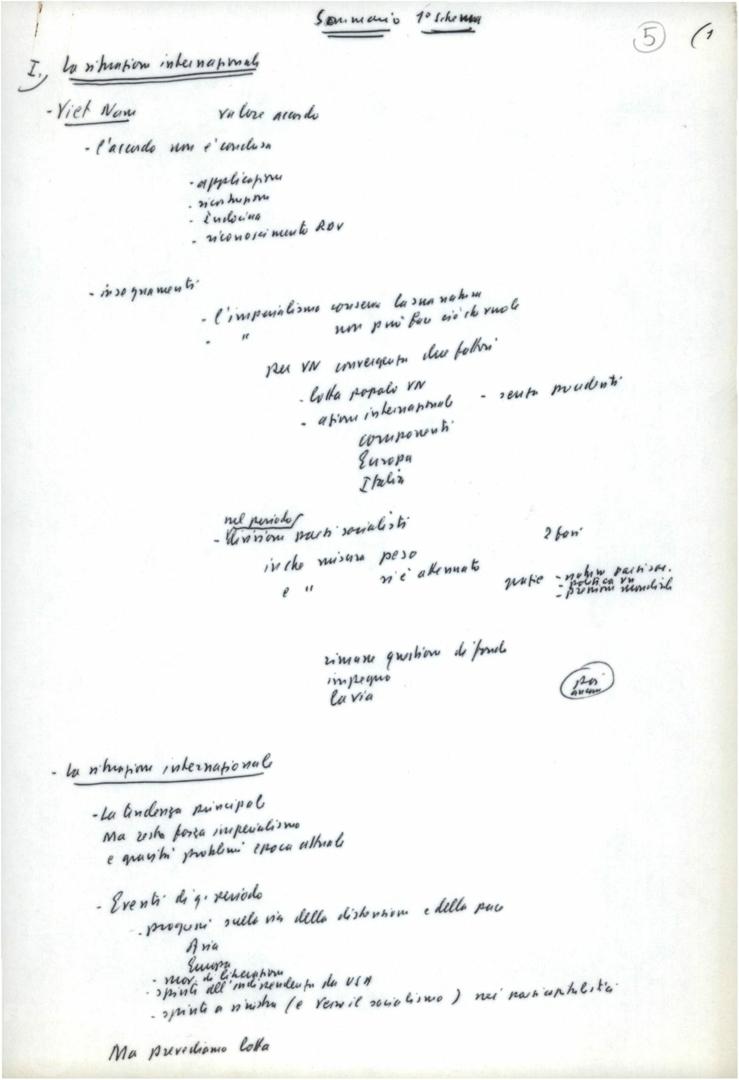 Sommario 1° schema
5 (1
I. La situazione internazionale
- Viet Nam valore accordo
- l'accordo non è concluso
- applicazione
- ricostruzione
- Indocina
- riconoscimento RDV
- insegnamenti
- l'imperialismo conserva la sua natura
- " non può fare ciò che vuole
per VN convergenza due fattori
- lotta popolo VN
- azione internazionale - senza precedenti
componenti
Europa
Italia
nel periodo
- divisioni paesi socialisti 2 fasi
in che misura peso
e " si è attenuato grazie - natura paesi soc.
- politica VN
- pressione mondiale
rimane questione di fondo
impegno
la via
poi
- La situazione internazionale
- La tendenza principale
Ma resta forza imperialismo
e gravità problemi epoca attuale
- Eventi di q. periodo
- progressi sulla via della distensione e della pace
Asia
Europa
- mov. di liberazione
- spinte all'indipendenza da USA
- spinte a sinistra (e verso il socialismo) nei paesi capitalistici
Ma prevediamo lotta